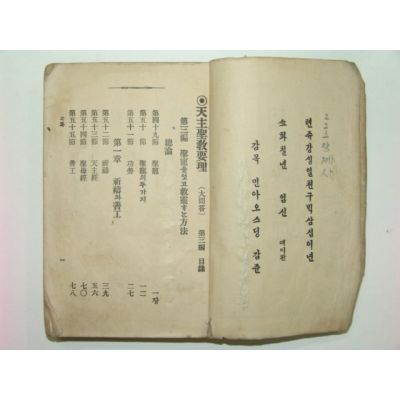 텬쥬강성일쳔구빅삼십이년
쇼화칠년 임신
감목 민아오스딩 감쥰
◉天主聖敎要理 (大問答) 第三編 目錄
第三編 聖寵을엇고救靈하는方法
總論
第四十九節 聖寵 一張
第五十節 聖寵의두가지 一二
第五十一節 功勞 二七
第一章 祈禱와善工
第五十二節 祈禱 三九
第五十三節 天主經 五六
第五十四節 聖母經 七〇
第五十五節 善工 七八
目錄 一